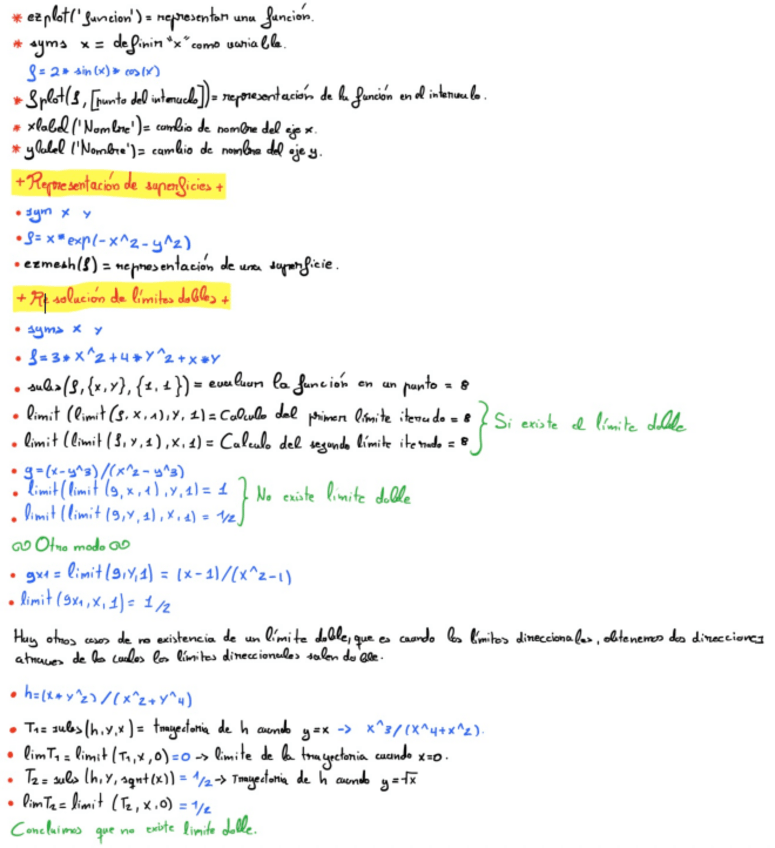 * ezplot('funcion') = representar una función.
* syms x = definir "x" como variable.
f = 2* sin(x)* cos(x)
* fplot(f, [punto del intervalo]) = representación de la función en el intervalo.
* xlabel ('Nombre') = cambio de nombre del eje x.
* ylabel ('Nombre') = cambio de nombre del eje y.
+ Representación de superficies +
• sym x y
• f = x*exp(-x^2-y^2)
• ezmesh(f) = representación de una superficie.
+ Resolución de límites dobles +
• syms x y
• f = 3*x^2+4*y^2+x*y
• subs(f, {x,y}, {1,1}) = evaluar la función en un punto = 8
• limit (limit (f, x, 1), y, 1) = Calculo del primer límite iterado = 8
Si existe el límite doble
• limit (limit (f, y, 1), x, 1) = Calculo del segundo límite iterado = 8
• g = (x-y^3)/(x^2-y^3)
• limit (limit (g, x, 1), y, 1) = 1
No existe limite doble
• limit (limit (g, y, 1), x, 1) = 1/2
∞ Otro modo ∞
• gx1 = limit (g, y, 1) = (x-1)/(x^2-1)
• limit (gx1, x, 1) = 1/2
Hay otros casos de no existencia de un límite doble, que es cuando los límites direccionales, obtenemos dos direcciones
atraves de las cuales los límites direccionales salen doble.
• h = (x*y^2)/(x^2+y^4)
• T1 = subs (h, y, x) = trayectoria de h cuando y=x -> x^3/(x^4+x^2).
• limT1 = limit (T1, x, 0) = 0 -> limite de la trayectoria cuando x=0.
• T2 = subs (h, y, sqrt(x)) = 1/2 -> Trayectoria de h cuando y=√x
• limT2 = limit (T2, x, 0) = 1/2
Concluimos que no existe limite doble.